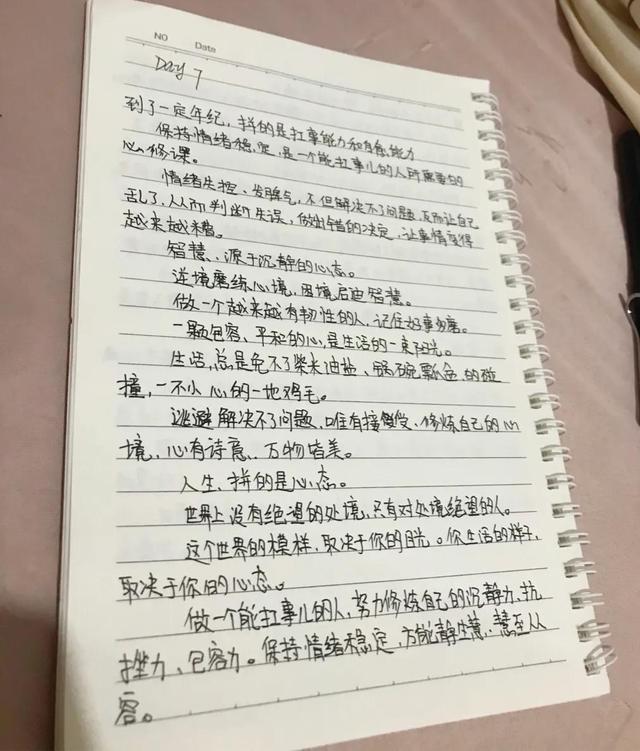 NO    Date
Day 7
到了一定年纪，拼的是扛事能力和自愈能力
保持情绪稳定，是一个能扛事儿的人所需要的
心修课。
情绪失控、发脾气，不但解决不了问题，反而让自己
乱了，从而判断失误，做出错的决定，让事情变得
越来越糟。
智慧、源于沉静的心态。
逆境磨练心境，困境启迪智慧。
做一个越来越有韧性的人，记住好事多磨。
一颗包容、平和的心，是生活的一束阳光。
生活，总是免不了柴米油盐、锅碗瓢盆的碰
撞，一不小心的一地鸡毛。
逃避解决不了问题，唯有接受、修炼自己的心
境，心有诗意、万物皆美。
人生、拼的是心态。
世界上没有绝望的处境，只有对处境绝望的人。
这个世界的模样，取决于你的目光。你生活的样子，
取决于你的心态。
做一个能扛事儿的人，努力修炼自己的沉静力、抗
挫力、包容力。保持情绪稳定，方能静生慧，慧至从
容。